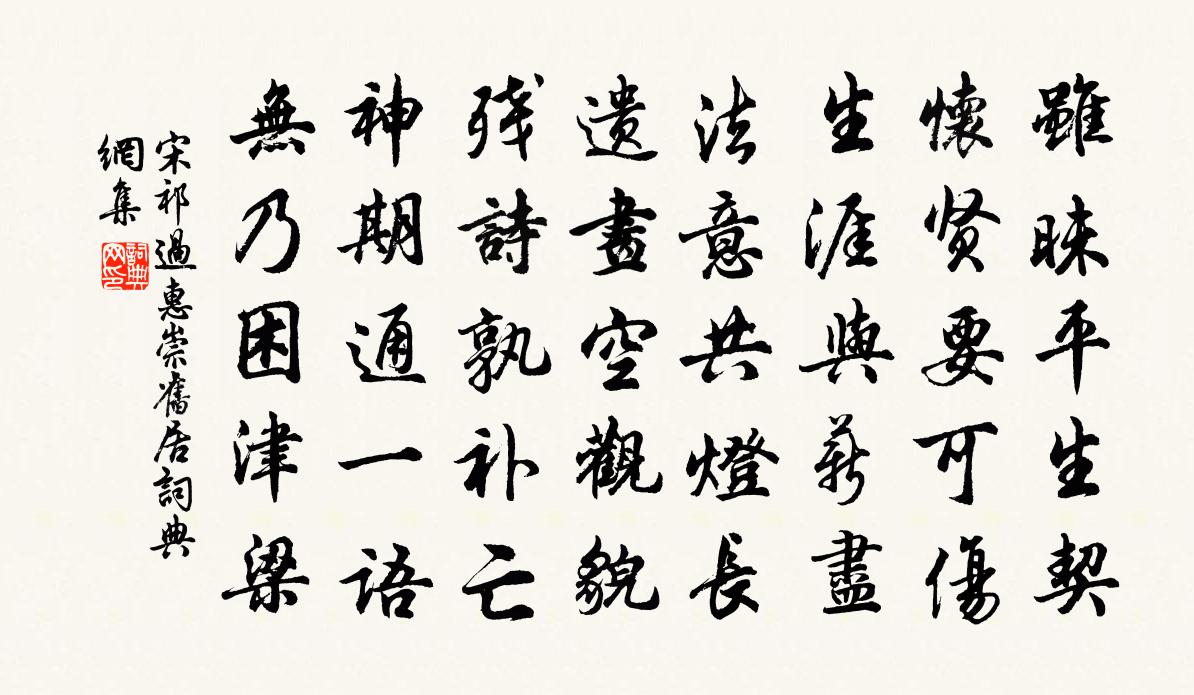 雖昧平生契
懷贤要可傷
生涯與薪盡
法意共燈長
遗畫空觀貌
殘詩孰补亡
神期通一语
無乃困津梁
宋祁過惠崇舊居詞典
網集
詞典
网印